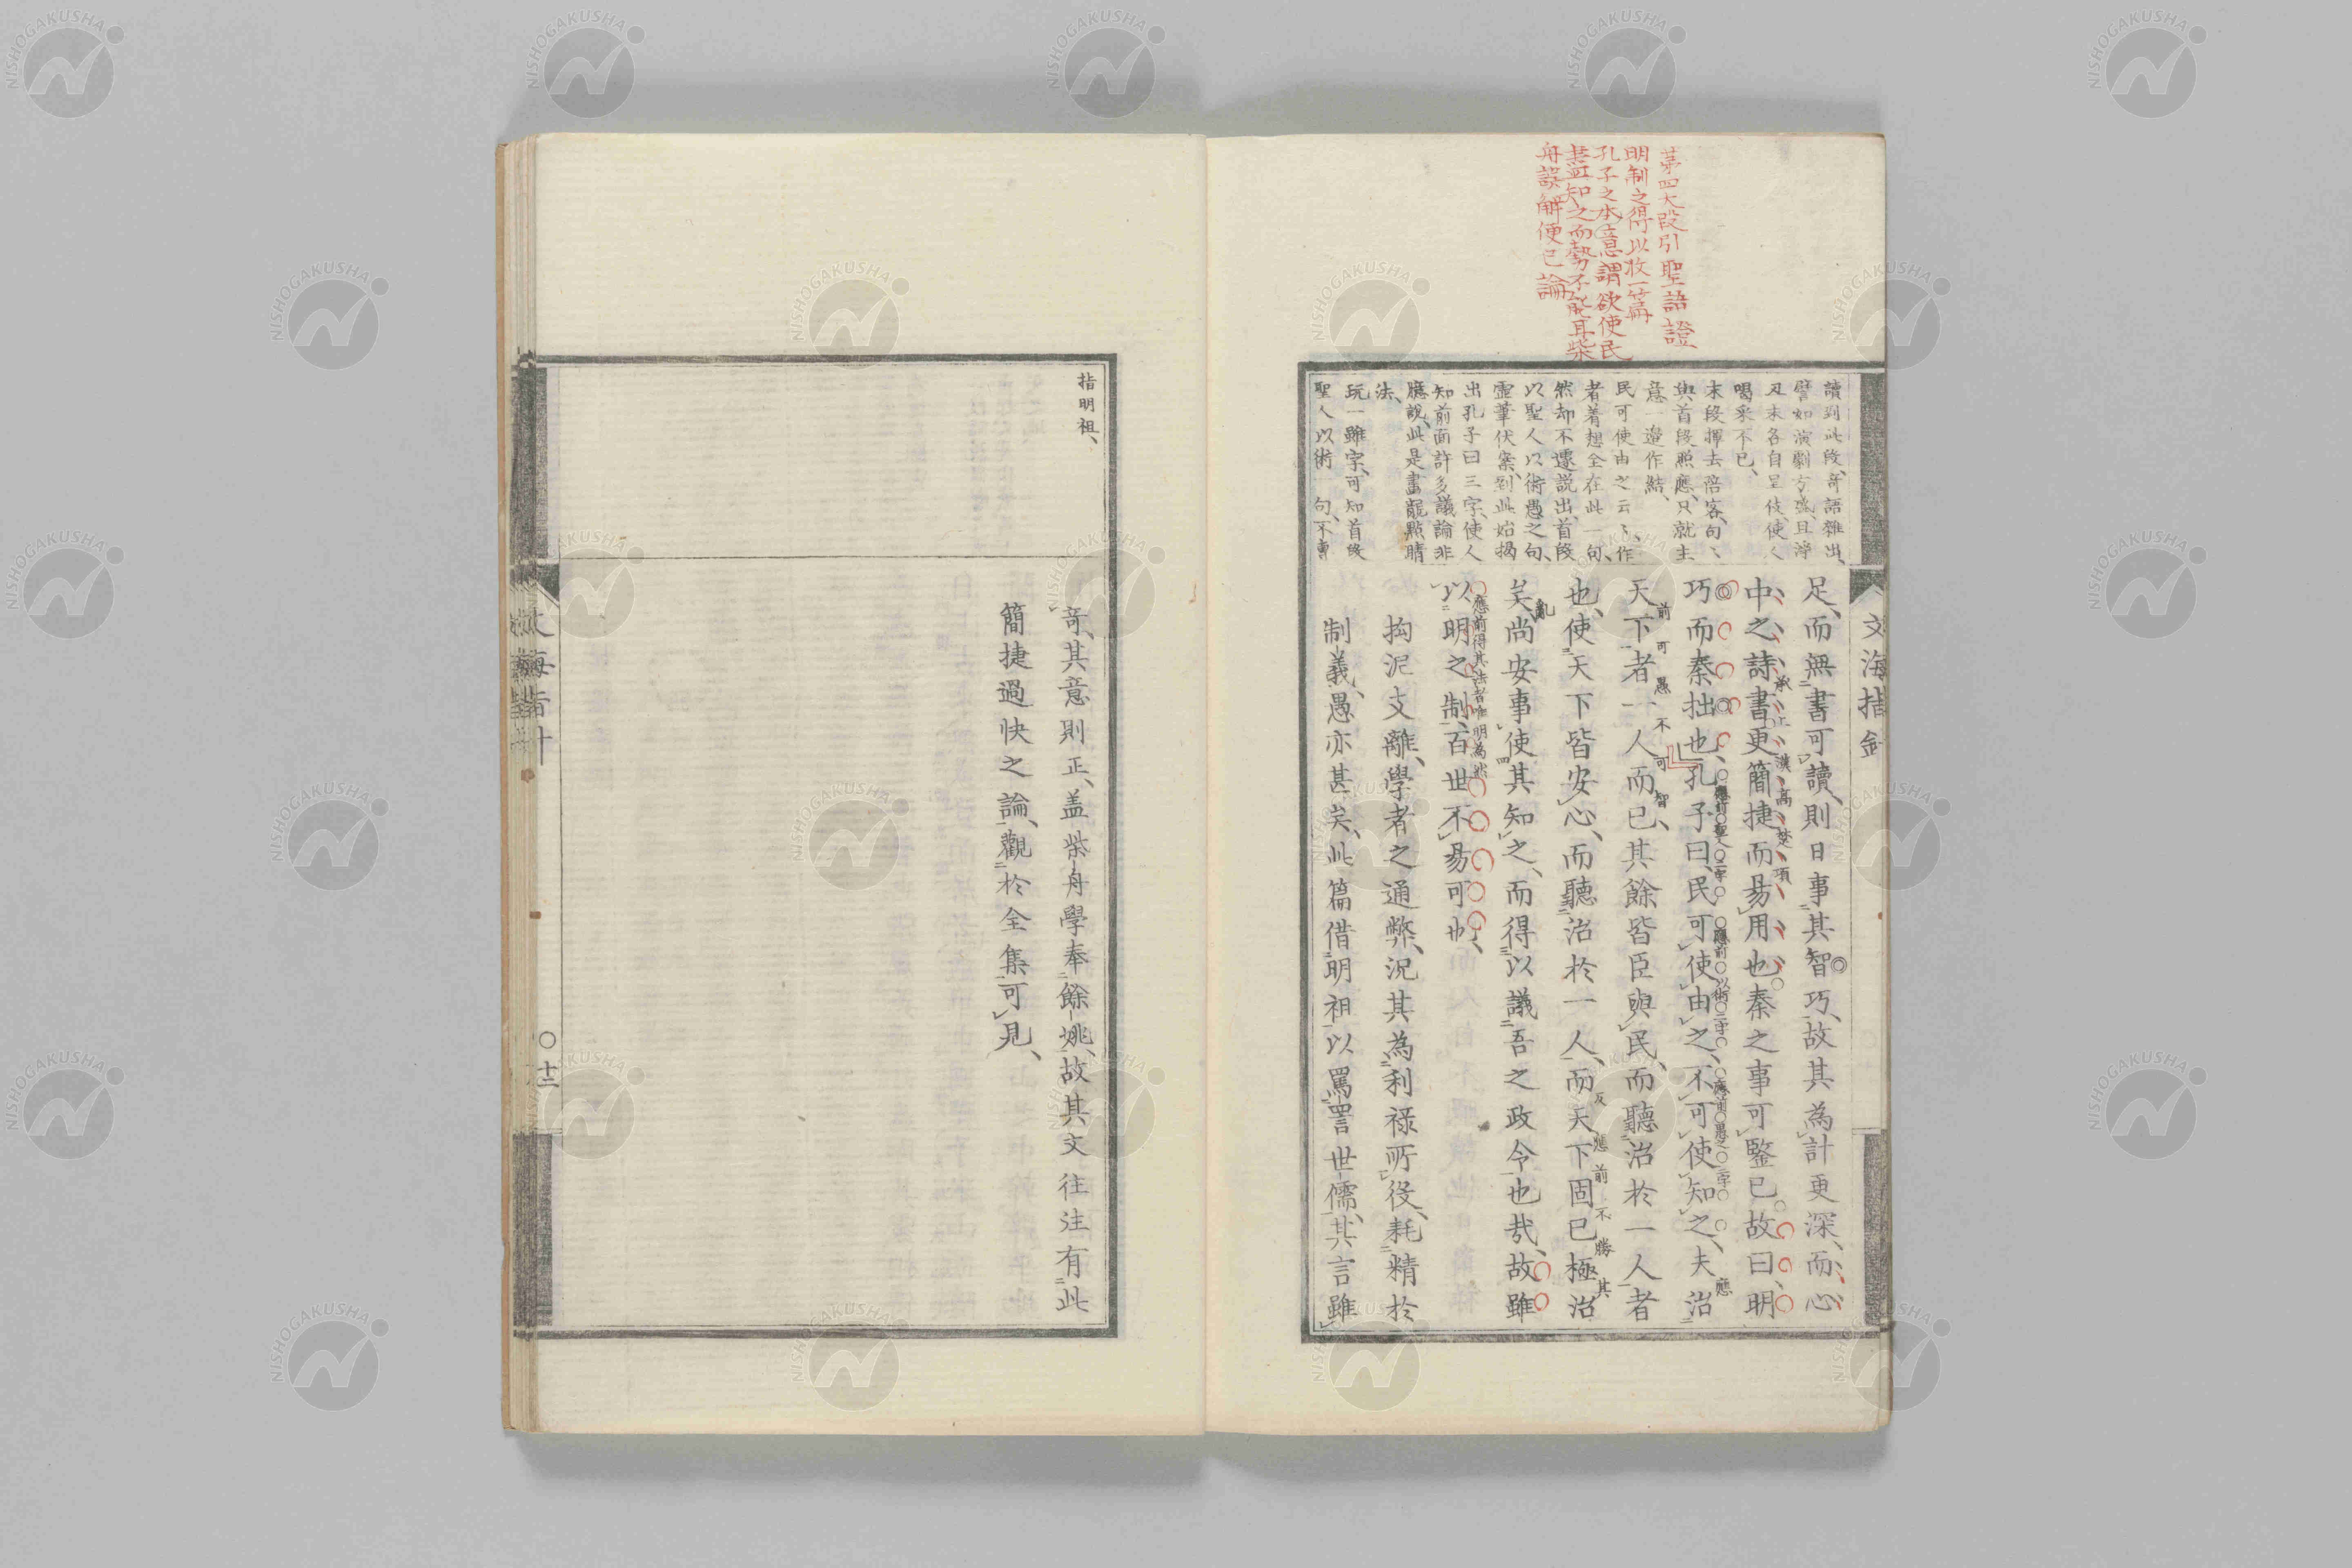 第四大段引聖語證
明制之得以收一篇
孔子之本意謂欲使民
盡知之而勢不能耳柴
舟誤解便己論
讀到此段、奇語雜出、
譬如演劇方盛、且淨
丑末各自呈伎、使人
喝采不已、
末段揮去陪客、句々
與首段照應、只就主
意一邉作結、
民可使由之云々、作
者着想全在此一句、
然却不遽説出、首段
以聖人以術愚之句、
靈筆伏案、到此始揭
出孔子曰三字、使人
知前面許多議論非
臆說、此是畫龍點睛
法、
玩一雖字、可知首段
聖人以術一句、不專
文海指針
足、而無書可讀、則日事其智巧、故其為計更深、而心
中之詩書更簡捷而易用也秦之事可鑒已故曰、明
承上漢高楚項
巧而秦拙也、孔子曰、民可使由之、不可使知之、夫治
應前聖人二字
應前以術二字
應前愚之二字
應
天下者一人而已、其餘皆臣與民、而聽治於一人者
前可愚不可智
也、使天下皆安心、而聽治於一人、而天下固已極治
反應前不勝其
矣、尚安事使其知之、而得以議吾之政令也哉、故雖
亂
以明之制、百世不易可也、
應前得其法者唯明為然
拘泥支離、學者之通弊、況其為利祿所役、耗精於
制義、愚亦甚矣、此篇借明祖以罵詈世儒、其言雖
指明祖、
奇、其意則正、盖柴舟學奉餘姚、故其文往往有此
簡捷過快之論、觀於全集可見、
文海指針
○十二